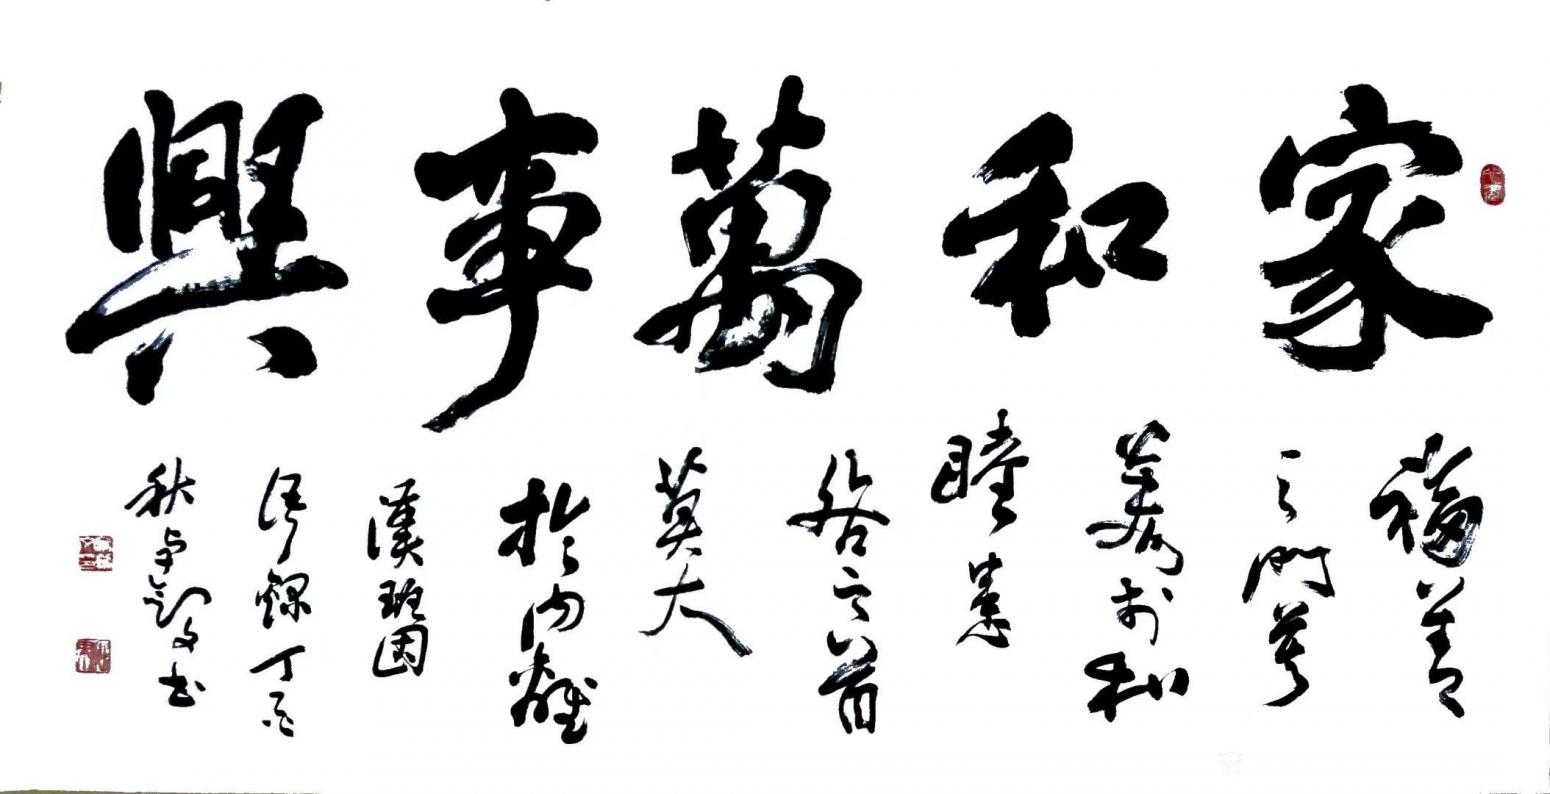 家和萬事興
福善
之門莫
美於和
睦患
咎之首
莫大
於内離
漢班固
語錄丁酉
秋卓敦文書